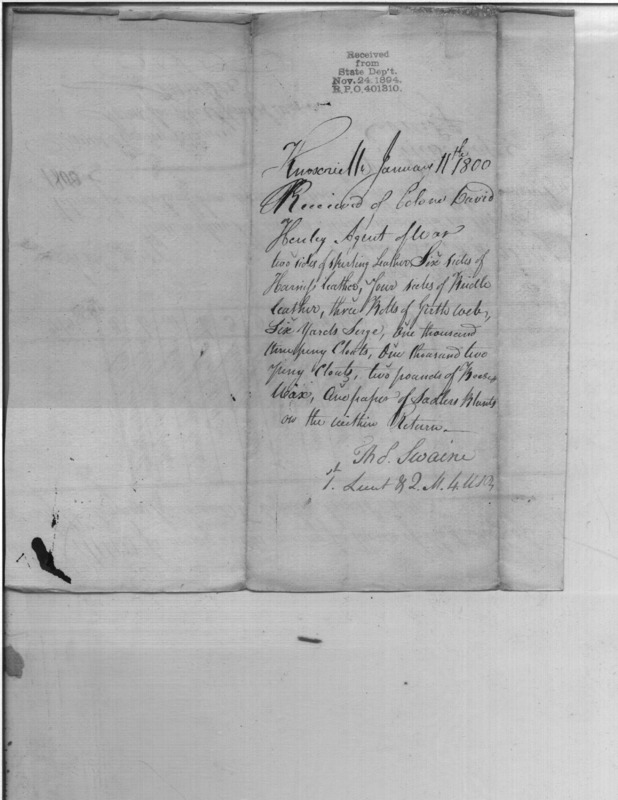 Received
from
State Dep't.
Nov. 24. 1894.
R.P.O. 401310.
Knoxville January 11th 1800
Received of Colone David
Henley Agent of War
two sides of skirting leather, Six sides of
Harness leather, four sides of Bridle
leather, three Bolts of Girth web,
Six Yards Serge, One thousand
peny Clouts, One thousand two
peny Clouts, two pounds of Bees
Wax, One paper of Sadlers Blunts
on the within Return.
Th S. Swaine
1st Lieut & Q. M. 4.